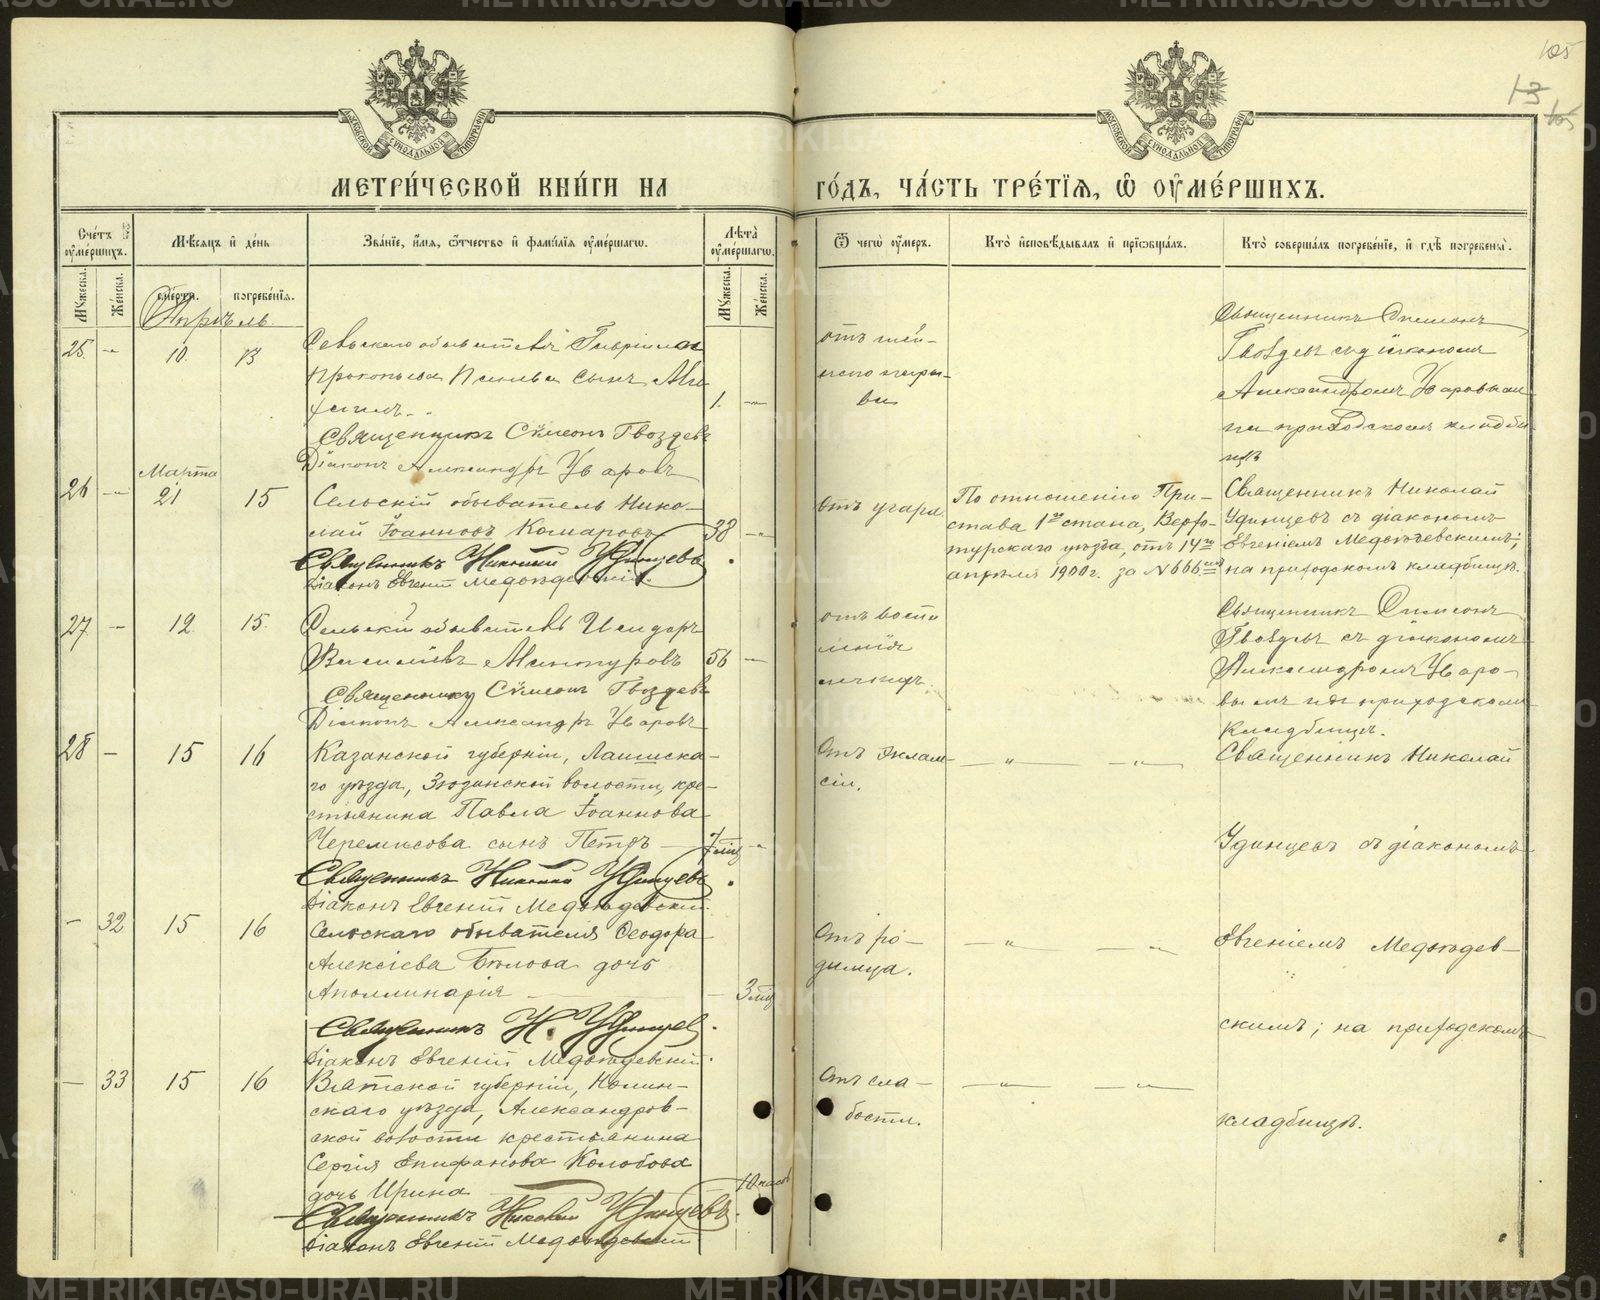 105
13
105
МОСКОВСКОЙ СѴНОДАЛЬНОЙ ТИПОГРАФІИ
МОСКОВСКОЙ СѴНОДАЛЬНОЙ ТИПОГРАФІИ
МЕТРИ́ЧЕСКОЙ КНИ́ГИ НА
ГО́ДЪ, ЧА́СТЬ ТРЕ́ТІѦ, Ѿ ОУМЕ́РШИХЪ.
Сче́тъ оумершихъ.
Мѣсѧцъ и день
Зва́ніе, и́мѧ, ѻ҆́тчество и фами́лїѧ оумершагѡ.
Лѣта̀ оумершагѡ.
Ѿ чегѡ̀ оумеръ.
Кто̀ и҆сповѣ́дывалъ и прїѡбща́лъ.
Кто̀ соверша́лъ погребе́ніе, и гдѣ̀ погребены̀.
Мужеска. Женска. смерти. погребе́нїѧ. Мужеска. Женска.
Апрѣль
25. " 10. 13
Сельскаго обывателя Гавриила
Прокопьева сынъ
1. "
Священникъ Сѵмеонъ Гвоздевъ
Діаконъ Александръ Уваровъ
Священникъ Симеонъ
Гвоздевъ съ діакономъ
Александромъ Уваровым
на приходскомъ кладби-
щѣ
26 " Марта 21 15
Сельскій обыватель Нико-
лай Іоанновъ Комаровъ 38 "
Священникъ Николай Удинцевъ
Діаконъ Евгеній Медвѣдевскій.
отъ угара
По отношенію При-
става 1го стана, Верхо-
турскаго уѣзда, отъ 14го
апрѣля 1900 г. за № 666.
Священникъ Николай
Удинцевъ съ діакономъ
Евгеніемъ Медвѣдевскимъ;
на приходскомъ кладбищѣ.
27 " 12 15.
Сельскій обыватель Исидоръ
Василіевъ 56 "
Священникъ Сѵмеонъ Гвоздевъ
Діаконъ Александръ Уваровъ
отъ воспа
ленія
легкихъ
Священникъ Симеонъ
Гвоздевъ съ діакономъ
Александромъ Уваро-
вымъ на приходскомъ
кладбищѣ.
28 - 15 16
Казанской губерніи, Лаишевска-
го уѣзда, Зюзинской волости, кре-
стьянина Павла Іоаннова
Черемисова сынъ Петръ 7 мѣс "
Священникъ Николай Удинцевъ
Діаконъ Евгеній Медвѣдевскій.
Отъ эклам-
сіи.
" "
Священникъ Николай
Удинцевъ съ діакономъ
- 32 15 16
Сельскаго обывателя Ѳеодора
Алексіева Бѣлова дочь
Аполлинарія - 3 мѣс
Священникъ Н. Удинцев
Діаконъ Евгеній Медвѣдевскій.
Отъ ро-
димца.
" "
Евгеніемъ Медвѣдев-
скимъ; на приходскомъ
- 33 15 16
Вятской губерніи, Нолин-
скаго уѣзда, Александров-
ской волости крестьянина
Сергія Епифанова Колобова
дочь Ирина 10 часов
Священникъ Николай Удинцевъ
Діаконъ Евгеній Медвѣдевскій
Отъ сла-
бости.
" "
кладбищѣ.
METRIKI.GASO-URAL.RU